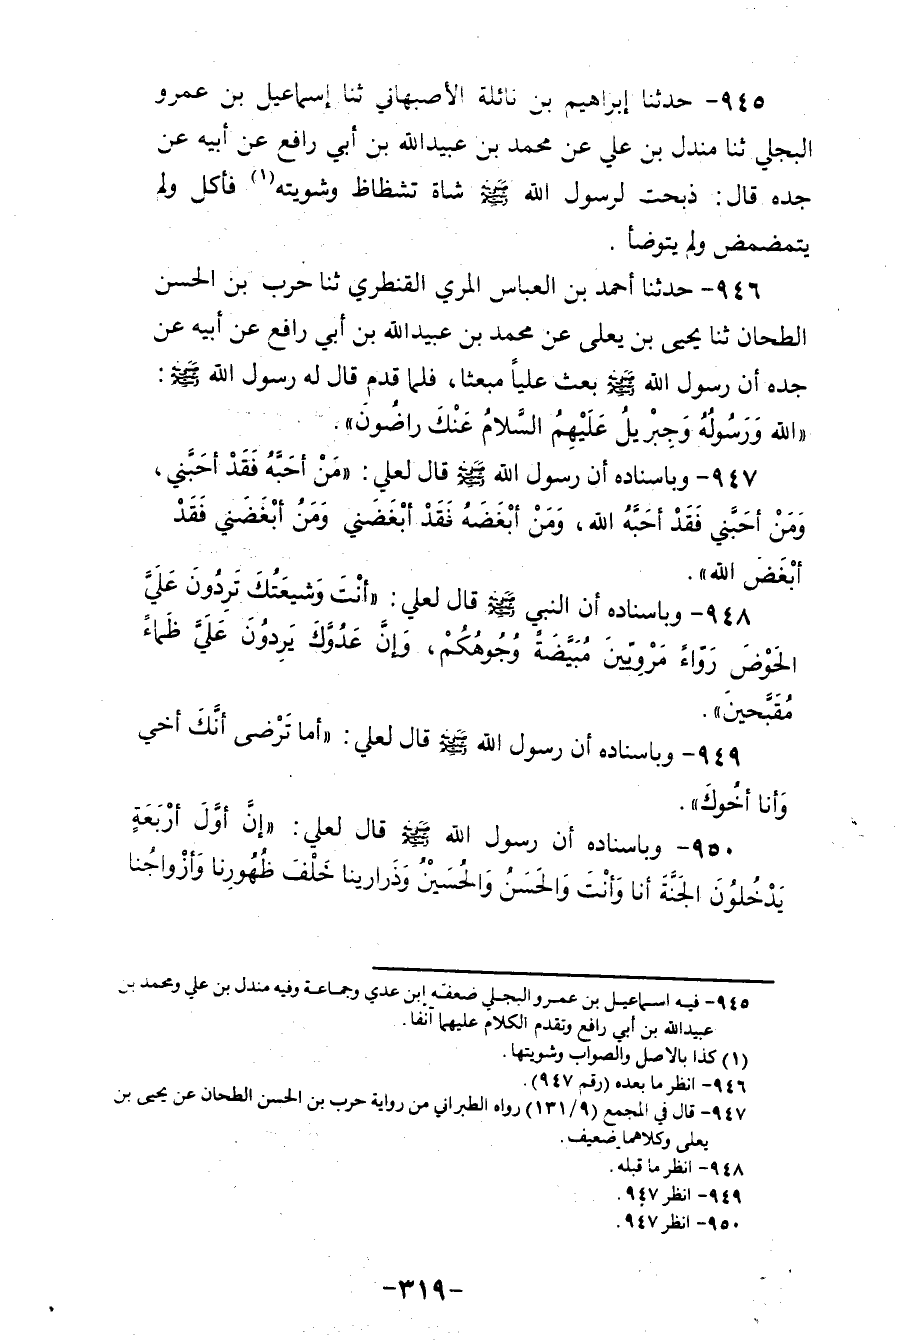 ٩٤٥- حدثنا إبراهيم بن نائلة الأصبهاني ثنا إسماعيل بن عمرو
البجلي ثنا مندل بن علي عن محمد بن عبيدالله بن أبي رافع عن أبيه عن
جده قال: ذبحت لرسول الله ﷺ شاة تشظاظ وشويته(١) فأكل ولم
يتمضمض ولم يتوضأ .
٩٤٦- حدثنا أحمد بن العباس المري القنطري ثنا حرب بن الحسن
الطحان ثنا يحيى بن يعلى عن محمد بن عبيدالله بن أبي رافع عن أبيه عن
جده أن رسول الله ﷺ بعث علياً مبعثا، فلما قدم قال له رسول الله ﷺ :
«الله وَرَسُولُهُ وَجِبْرِيلُ عَلَيْهِمُ السَّلامُ عَنْكَ راضُونَ» .
٩٤٧- وباسناده أن رسول الله ﷺ قال لعلي: «مَنْ أحَبَّهُ فَقَدْ أحَبَّني ،
وَمَنْ أحَبَّني فَقَدْ أحَبَّهُ الله ، وَمَنْ أبْغَضَهُ فَقَدْ أبْغَضَني وَمَنْ أبْغَضَني فَقَدْ
أبْغَضَ الله» .
٩٤٨- وباسناده أن النبي ﷺ قال لعلي: «أنْتَ وَشيعَتُكَ تَرِدُونَ عَلَيَّ
الحَوْضَ رَوّاءً مَرْوِيّينَ مُبَيَّضَةً وُجُوهُكُمْ ، وَإنَّ عَدُوَّكَ يَرِدوُنَ عَلَيَّ ظَماءً
مُقَبَّحينَ» .
٩٤٩- وباسناده أن رسول الله ﷺ قال لعلي: «أما تَرْضى أنَّكَ أخي
وَأنا أخُوكَ» .
٩٥٠- وباسناده أن رسول الله ﷺ قال لعلي: «إنَّ أوَّلَ أرْبَعَةٍ
يَدْخُلوُنَ الجَنَّةَ أنا وَأنْتَ وَالحَسَنُ وَالحُسَيْنُ وَذَرارينا خَلْفَ ظُهُورِنا وَأزْواجُنا
٩٤٥- فيه اسماعيل بن عمرو البجلي ضعفه إبن عدي وجماعة وفيه مندل بن علي ومحمد بن
عبيدالله بن أبي رافع وتقدم الكلام عليهما آنفا.
(١) كذا بالاصل والصواب وشويتها .
٩٤٦- انظر ما بعده (رقم ٩٤٧) .
٩٤٧- قال في المجمع (١٣١/٩) رواه الطبراني من رواية حرب بن الحسن الطحان عن يحيى بن
يعلى وكلاهما ضعيف .
٩٤٨- انظر ما قبله .
٩٤٩- انظر ٩٤٧ .
٩٥٠- انظر ٩٤٧ .
-٣١٩-